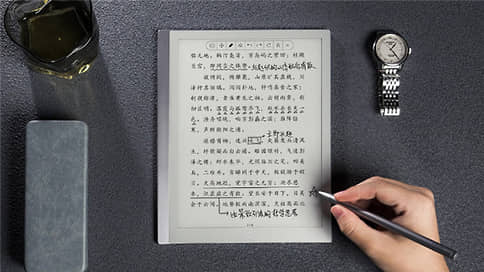 临无地。鹤汀凫渚，穷岛屿之萦回；桂殿
兰宫，即冈峦之体势。
披绣闼，俯雕甍，山原旷其盈视，
川泽纡其骇瞩。闾阎扑地，钟鸣鼎食之家；
舸舰弥津，青雀黄龙之舳。云销雨霁，彩
彻区明。落霞与孤鹜齐飞，秋水共长天一
色。渔舟唱晚，响穷彭蠡之滨；雁阵惊
寒，声断衡阳之浦。
遥襟甫畅，逸兴遄飞。爽籁发而清风
生，纤歌凝而白云遏。睢园绿竹，气凌彭
泽之樽；邺水朱华，光照临川之笔。四美
具，二难并。穷睇眄于中天，极娱游于暇
日。天高地迥，觉宇宙之无穷；兴尽悲
来，识盈虚之有数。望长安于日下，目吴
会于云间。地势极而南溟深，天柱高而北